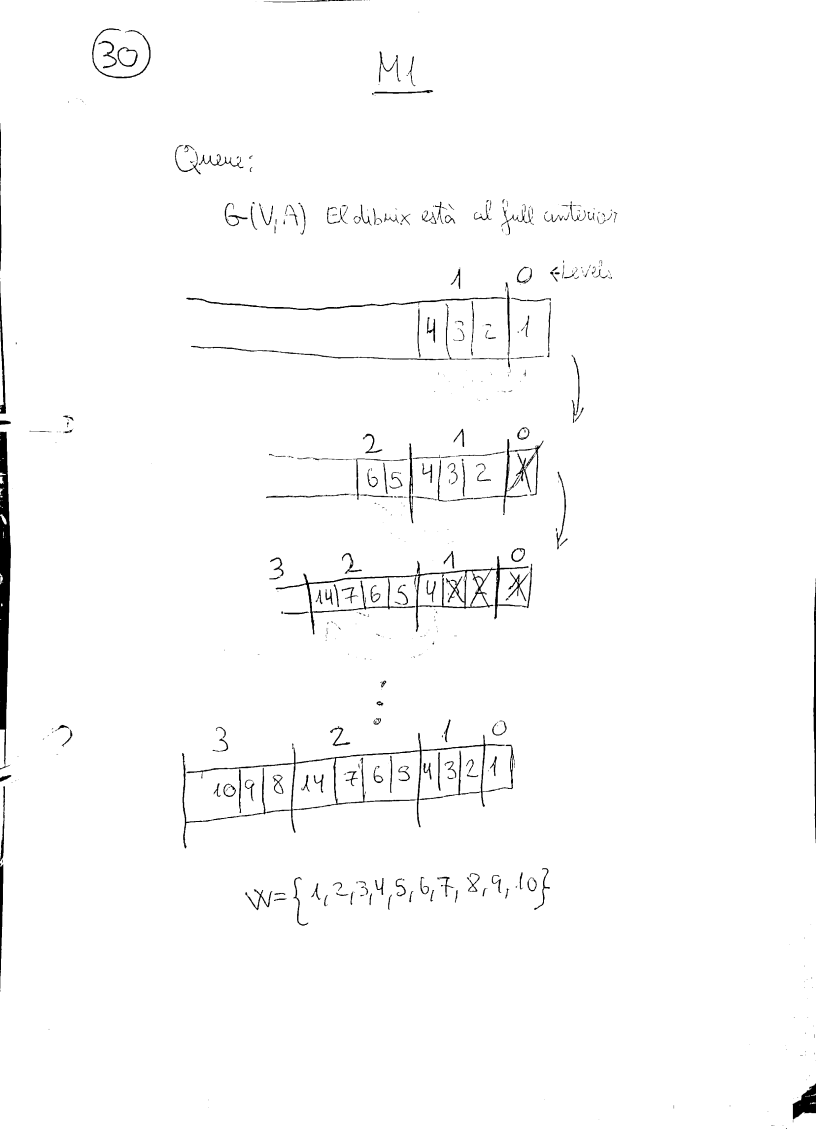 30
M1
Queue:
G(V,A) El dibuix està al full anterior
1 0 ←Levels
4 3 2 1
2 1 0
6 5 4 3 2 1
3 2 1 0
14 7 6 5 4 3 2 1
3 2 1 0
10 9 8 14 7 6 5 4 3 2 1
W={1,2,3,4,5,6,7,8,9,10}